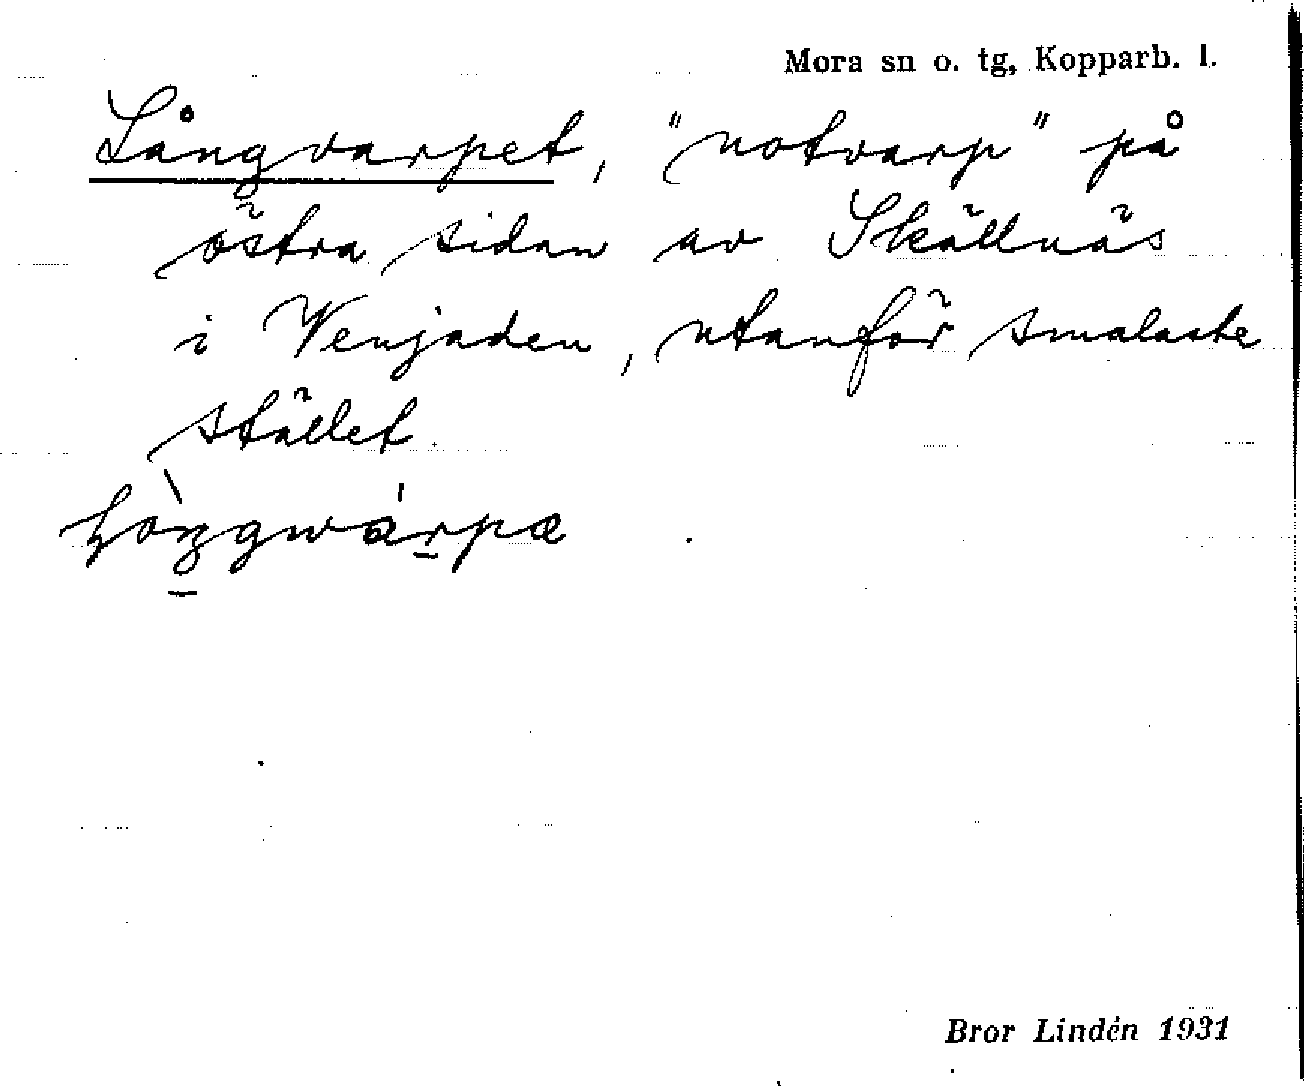 Mora sn o. tg, Kopparb. l.
Långvarpet, "notvarp" på
östra sidan av Skällnäs
i Venjaden, utanför smalaste
stället
Bror Lindén 1931